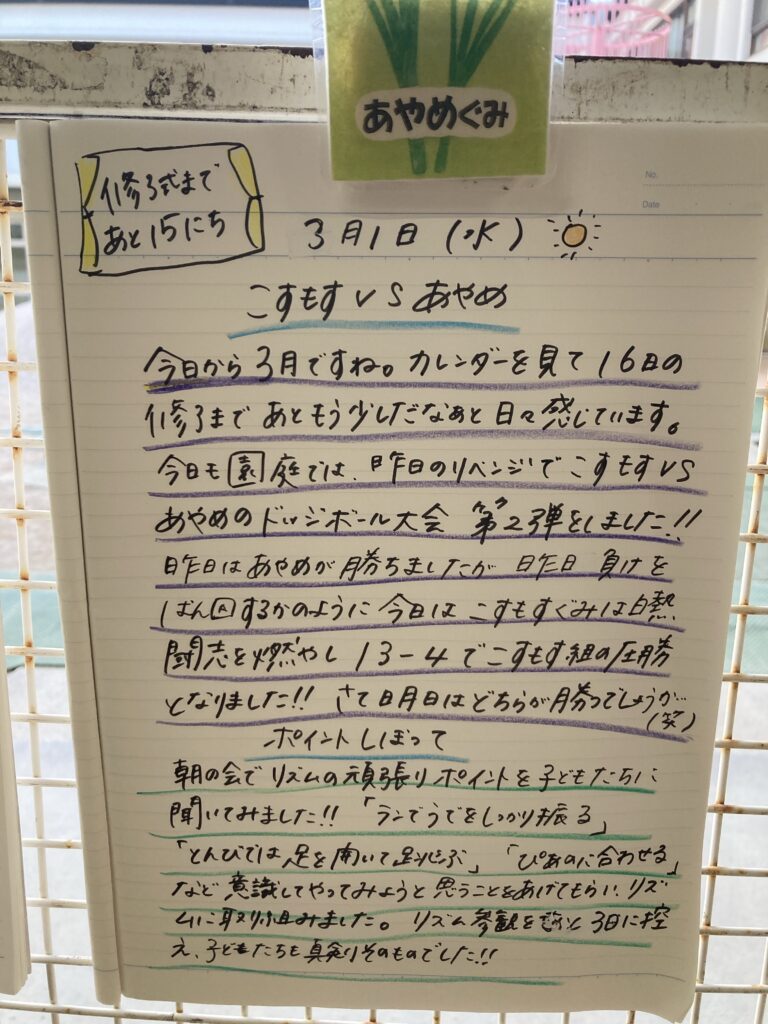 あやめぐみ
修了式まで
あと15にち
No.
Date
3月1日(水)
こすもすVSあやめ
今日から3月ですね。カレンダーを見て16日の
修了まであともう少しだなぁと日々感じています。
今日も園庭では、昨日のリベンジでこすもすVS
あやめのドッジボール大会 第2弾をしました!!
昨日はあやめが勝ちましたが昨日 負けを
ばん回するかのように今日は こすもすぐみは白熱
闘志を燃やし13-4でこすもす組の圧勝
となりました!! さて明日はどちらが勝つでしょうか
(笑)
ポイントしぼって
朝の会でリズムの頑張りポイントを子どもたちに
聞いてみました!!「ランでうでをしっかり振る」
「とんびでは足を開いて」「ぴあのに合わせる」
など意識してやってみようと思うことをあげてもらい、リズ
ムに取り組みました。リズム参観を 3日に控
え、子どもたちも真剣そのものでした!!